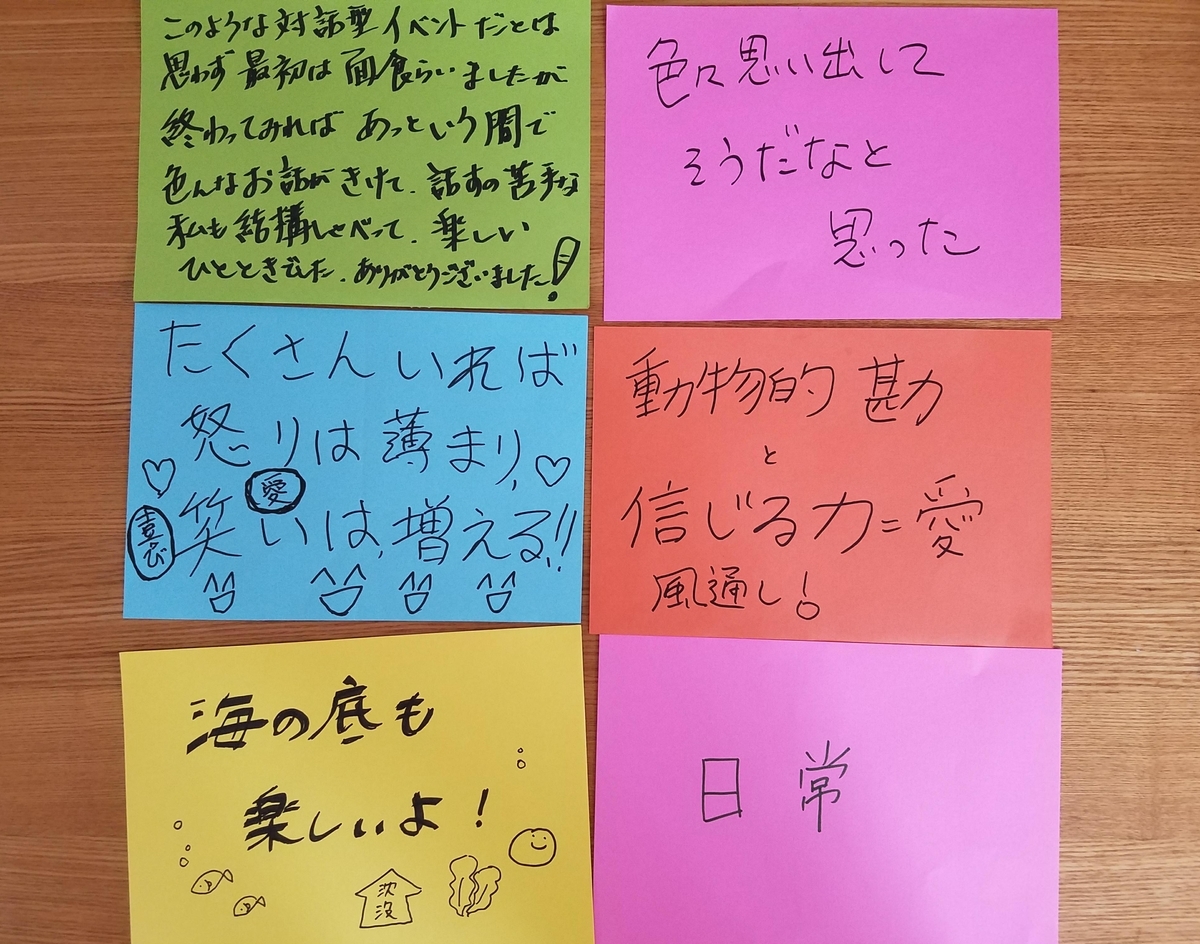 このような対話型イベントだとは
思わず最初は面食らいましたが
終わってみればあっという間で
色んなお話がきけて、話すの苦手な
私も結構しゃべって、楽しい
ひとときでした。ありがとうございました!
色々思い出して
そうだなと
思った
たくさんいれば
怒りは薄まり、
愛
喜び
笑いは、増える!!
動物的勘
と
信じる力=愛
風通し!
海の底も
楽しいよ!
沈没
日常